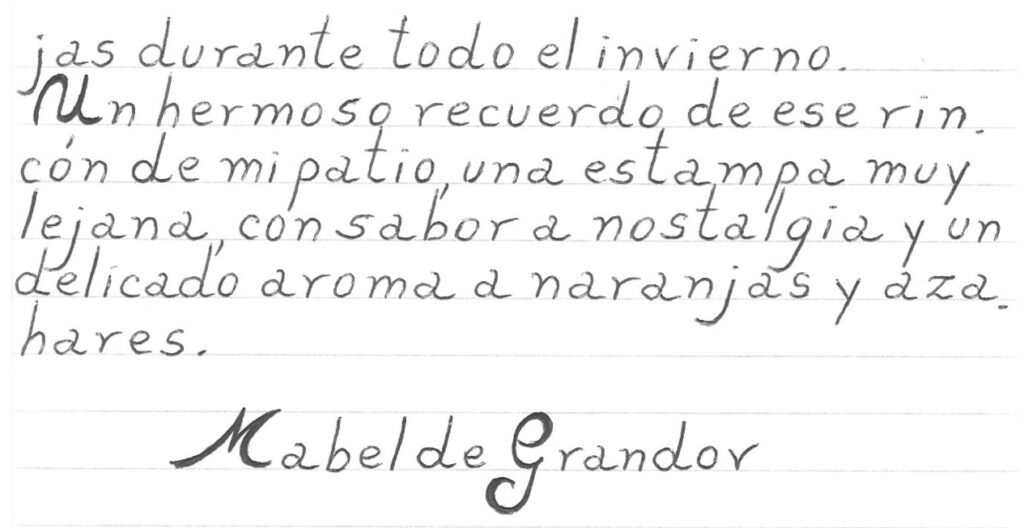 jas durante todo el invierno.
Un hermoso recuerdo de ese rin-
cón de mi patio, una estampa muy
lejana, con sabor a nostalgia y un
delicado aroma a naranjas y aza-
hares.
Mabel de Grandov